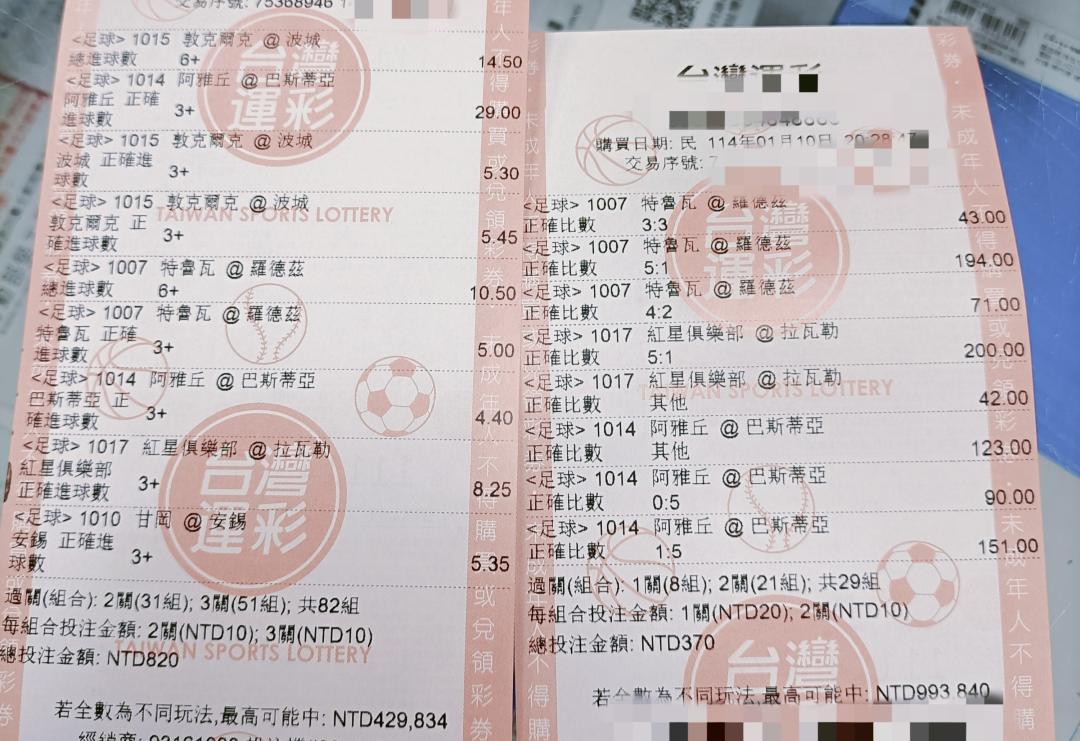 交易序號: 75368946
<足球> 1015 敦克爾克 @ 波城
總進球數 6+ 14.50
<足球> 1014 阿雅丘 @ 巴斯蒂亞
阿雅丘 正確
進球數 3+ 29.00
<足球> 1015 敦克爾克 @ 波城
波城 正確進
球數 3+ 5.30
<足球> 1015 敦克爾克 @ 波城
敦克爾克 正
確進球數 3+ 5.45
<足球> 1007 特魯瓦 @ 羅德茲
總進球數 6+ 10.50
<足球> 1007 特魯瓦 @ 羅德茲
特魯瓦 正確
進球數 3+ 5.00
<足球> 1014 阿雅丘 @ 巴斯蒂亞
巴斯蒂亞 正
確進球數 3+ 4.40
<足球> 1017 紅星俱樂部 @ 拉瓦勒
紅星俱樂部
正確進球數 3+ 8.25
<足球> 1010 甘岡 @ 安錫
安錫 正確進
球數 3+ 5.35
過關(組合): 2關(31組); 3關(51組); 共82組
每組合投注金額: 2關(NTD10); 3關(NTD10)
總投注金額: NTD820
若全數為不同玩法,最高可能中: NTD429,834
台灣運彩
TAIWAN SPORTS LOTTERY
台灣運彩
TAIWAN SPORTS LOTTERY
台灣運彩
購買日期: 民 114年01月10日 20:28:47
交易序號: 7
<足球> 1007 特魯瓦 @ 羅德茲
正確比數 3:3 43.00
<足球> 1007 特魯瓦 @ 羅德茲
正確比數 5:1 194.00
<足球> 1007 特魯瓦 @ 羅德茲
正確比數 4:2 71.00
<足球> 1017 紅星俱樂部 @ 拉瓦勒
正確比數 5:1 200.00
<足球> 1017 紅星俱樂部 @ 拉瓦勒
正確比數 其他 42.00
<足球> 1014 阿雅丘 @ 巴斯蒂亞
正確比數 其他 123.00
<足球> 1014 阿雅丘 @ 巴斯蒂亞
正確比數 0:5 90.00
<足球> 1014 阿雅丘 @ 巴斯蒂亞
正確比數 1:5 151.00
過關(組合): 1關(8組); 2關(21組); 共29組
每組合投注金額: 1關(NTD20); 2關(NTD10)
總投注金額: NTD370
若全數為不同玩法,最高可能中: NTD993,840
台灣運彩
TAIWAN SPORTS LOTTERY
台灣
未成年人不得購買或兌領彩券